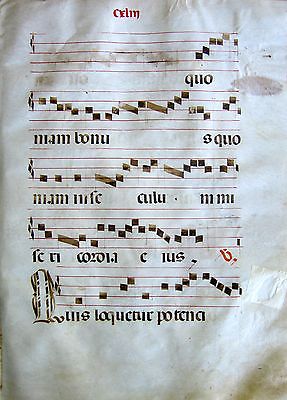 quo
niam bonu s quo
niam in se culu . m mi
se ri cordia e ius.
Quis loquetur potenci